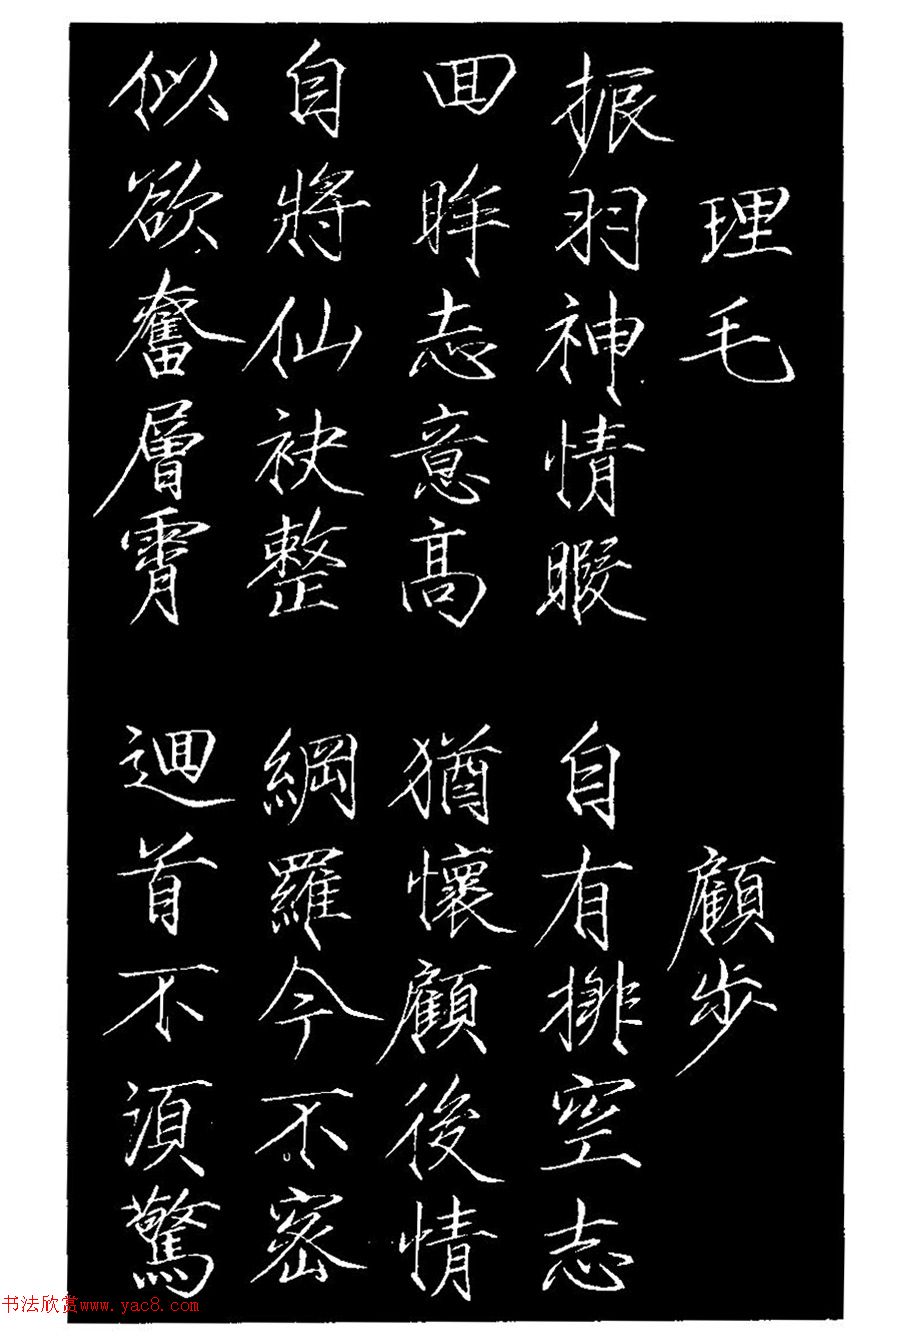 理毛
振羽神情暇
回眸志意高
自將仙袂整
似欲奮層霄
顧步
自有排空志
猶懷顧後情
網羅今不密
迴首不須驚
书法欣赏www.yac8.com